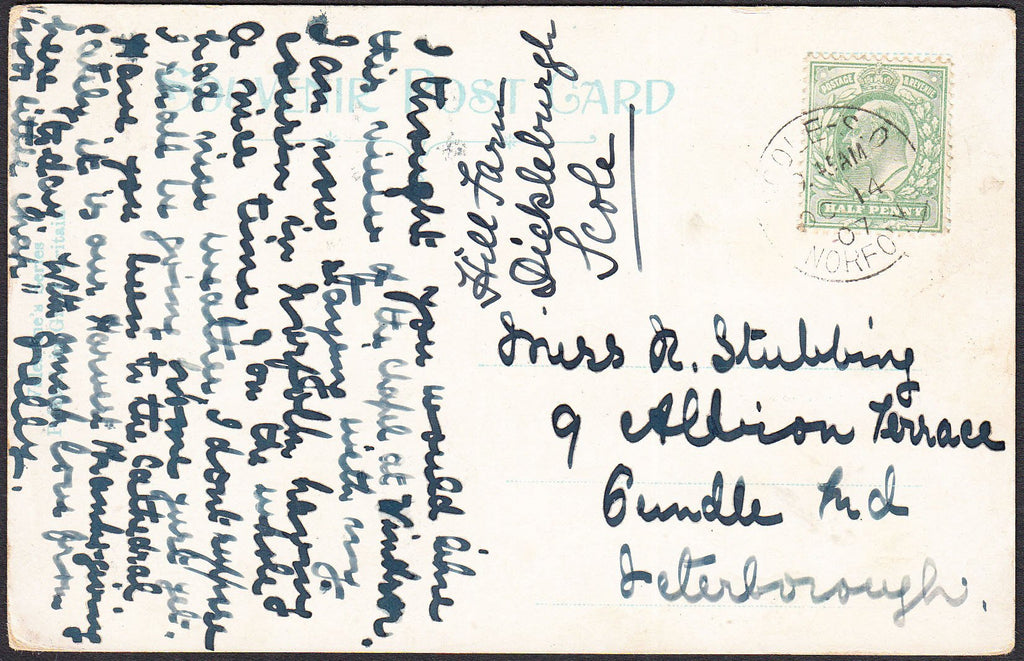 SOUVENIR POST CARD
Hill Farm
Dickleburgh
Scole
I thought you would like
this view of the chapel at Windsor.
I am now staying with my
cousin in Norfolk having
a nice time, & on the whole
had nice weather, I don't suppose
I shall be going home just yet.
Have you been to the Cathedral
lately, it is our Harvest Thanksgiving
here to-day. With much love from
"
Miss R. Stubbing
9 Albion Terrace
Oundle Rd
Peterborough.
POSTAGE REVENUE
HALF PENNY
14
07
NORFO